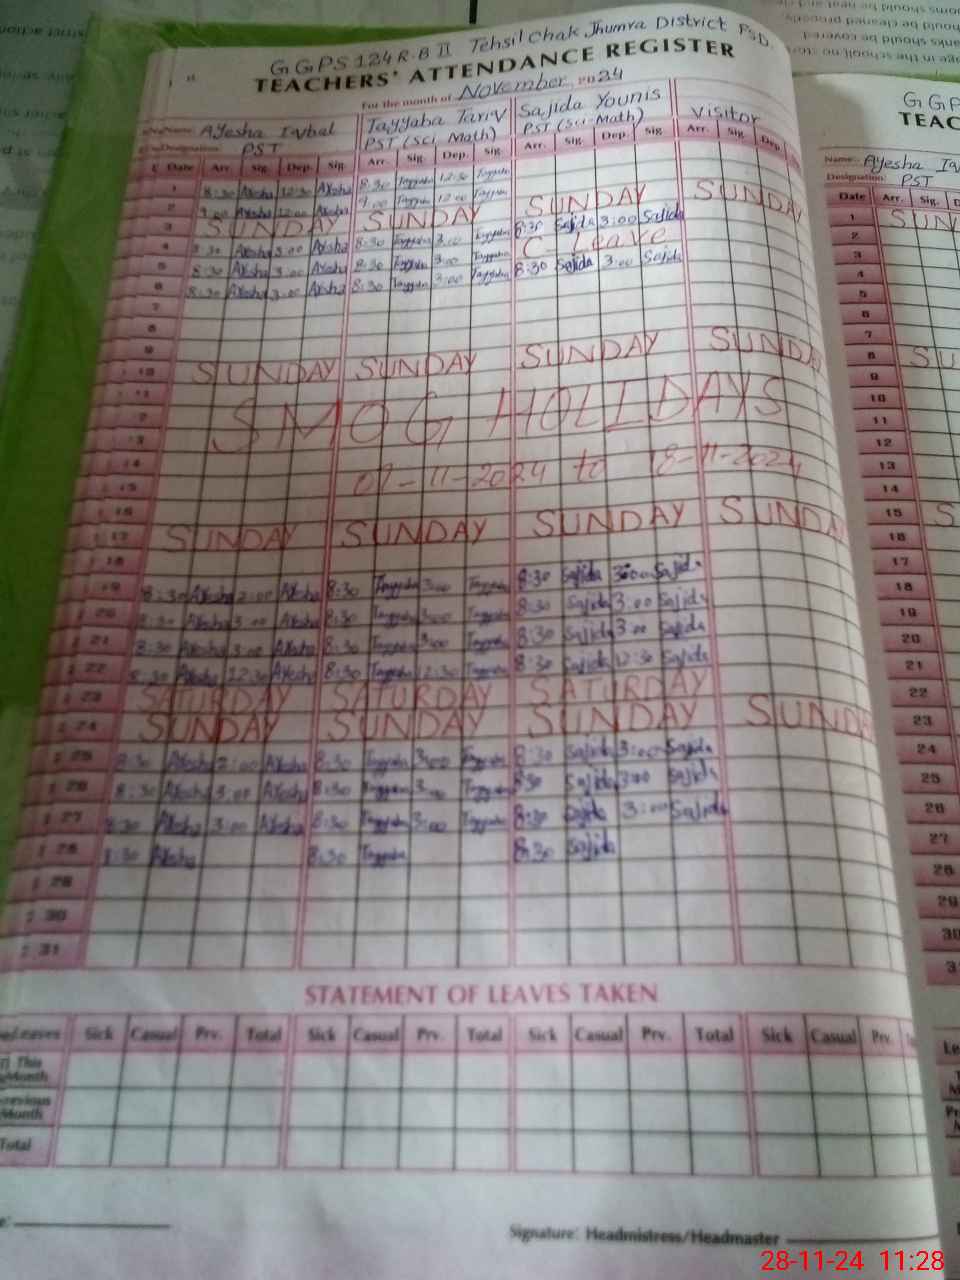 GGPS 124 R.B II Tehsil Chak Jhumra District FSD.
TEACHERS' ATTENDANCE REGISTER
For the month of November 2024
Name: Ayesha Iqbal Tayyaba Tariq Sajida Younis Visitor
Designation: PST PST (Sci Math) PST (Sci-Math)
Date Arr. Sig. Dep. Sig. Arr. Sig. Dep. Sig. Arr. Sig. Dep. Sig. Arr. Sig. Dep.
1 8:30 Ayesha 12:30 Ayesha 8:30 Tayyaba 12:30 Tayyaba
2 9:00 Ayesha 12:00 Ayesha 9:00 Tayyaba 12:00 Tayyaba
3 SUNDAY SUNDAY SUNDAY SUNDAY
4 8:30 Ayesha 3:00 Ayesha 8:30 Tayyaba 3:00 Tayyaba 8:30 Sajida 3:00 Sajida
5 8:30 Ayesha 3:00 Ayesha 8:30 Tayyaba 3:00 Tayyaba C-Leave
6 8:30 Ayesha 3:00 Ayesha 8:30 Tayyaba 3:00 Tayyaba 8:30 Sajida 3:00 Sajida
7
8
9
10 SUNDAY SUNDAY SUNDAY SUNDAY
11
12 SMOG HOLIDAYS
13
14 07-11-2024 to 18-11-2024
15
16
17 SUNDAY SUNDAY SUNDAY SUNDAY
18
19 8:30 Ayesha 2:00 Ayesha 8:30 Tayyaba 3:00 Tayyaba 8:30 Sajida 3:00 Sajida
20 8:30 Ayesha 3:00 Ayesha 8:30 Tayyaba 3:00 Tayyaba 8:30 Sajida 3:00 Sajida
21 8:30 Ayesha 3:00 Ayesha 8:30 Tayyaba 3:00 Tayyaba 8:30 Sajida 3:00 Sajida
22 8:30 Ayesha 12:30 Ayesha 8:30 Tayyaba 12:30 Tayyaba 8:30 Sajida 12:30 Sajida
23 SATURDAY SATURDAY SATURDAY
24 SUNDAY SUNDAY SUNDAY SUNDAY
25 8:30 Ayesha 2:00 Ayesha 8:30 Tayyaba 3:00 Tayyaba 8:30 Sajida 3:00 Sajida
26 8:30 Ayesha 3:00 Ayesha 8:30 Tayyaba 3:00 Tayyaba 8:30 Sajida 3:00 Sajida
27 8:30 Ayesha 3:00 Ayesha 8:30 Tayyaba 3:00 Tayyaba 8:30 Sajida 3:00 Sajida
28 8:30 Ayesha 8:30 Tayyaba 8:30 Sajida
29
30
31
STATEMENT OF LEAVES TAKEN
Leaves Sick Casual Prv. Total Sick Casual Prv. Total Sick Casual Prv. Total Sick Casual Prv.
This Month
Previous Month
Total
Signature: Headmistress/Headmaster
GGP
TEAC
Name: Ayesha Iq
Designation: PST
Date Arr. Sig. D
1 SUN
2
3
4
5
6
7
8 SU
9
10
11
12
13
14
15 S
16
17
18
19
20
21
22
23
24
25
26
27
28
29
30
28-11-24 11:28